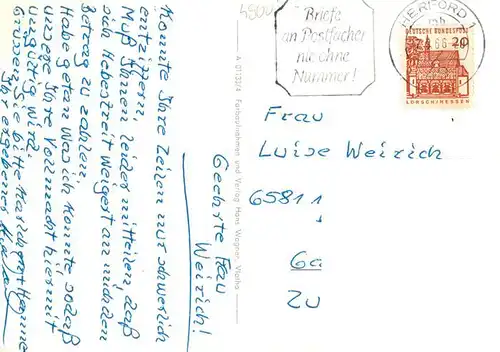 Geehrte Frau
Weirich!
Konnte Ihre Zeilen nur schwerlich
entziffern,
Muß Ihnen leider mitteilen, daß
sich Hebertreit weigert an mich den
Betrag zu zahlen.
Habe getan was ich konnte sodaß
unsere Ihre Vollmacht hiermit
ungültig wird.
Grüssen Sie bitte Marich
Ihr ergebener
A 0713214 Farbaufnahme und Verlag Hans Wagner, Vlotho
4900
Briefe
an Postfächer
nie ohne
Nummer!
HERFORD 1
mb
66
DEUTSCHE BUNDESPOST
20
LORSCH/HESSEN
Frau
Luise Weirich
65811
Ga
Zu